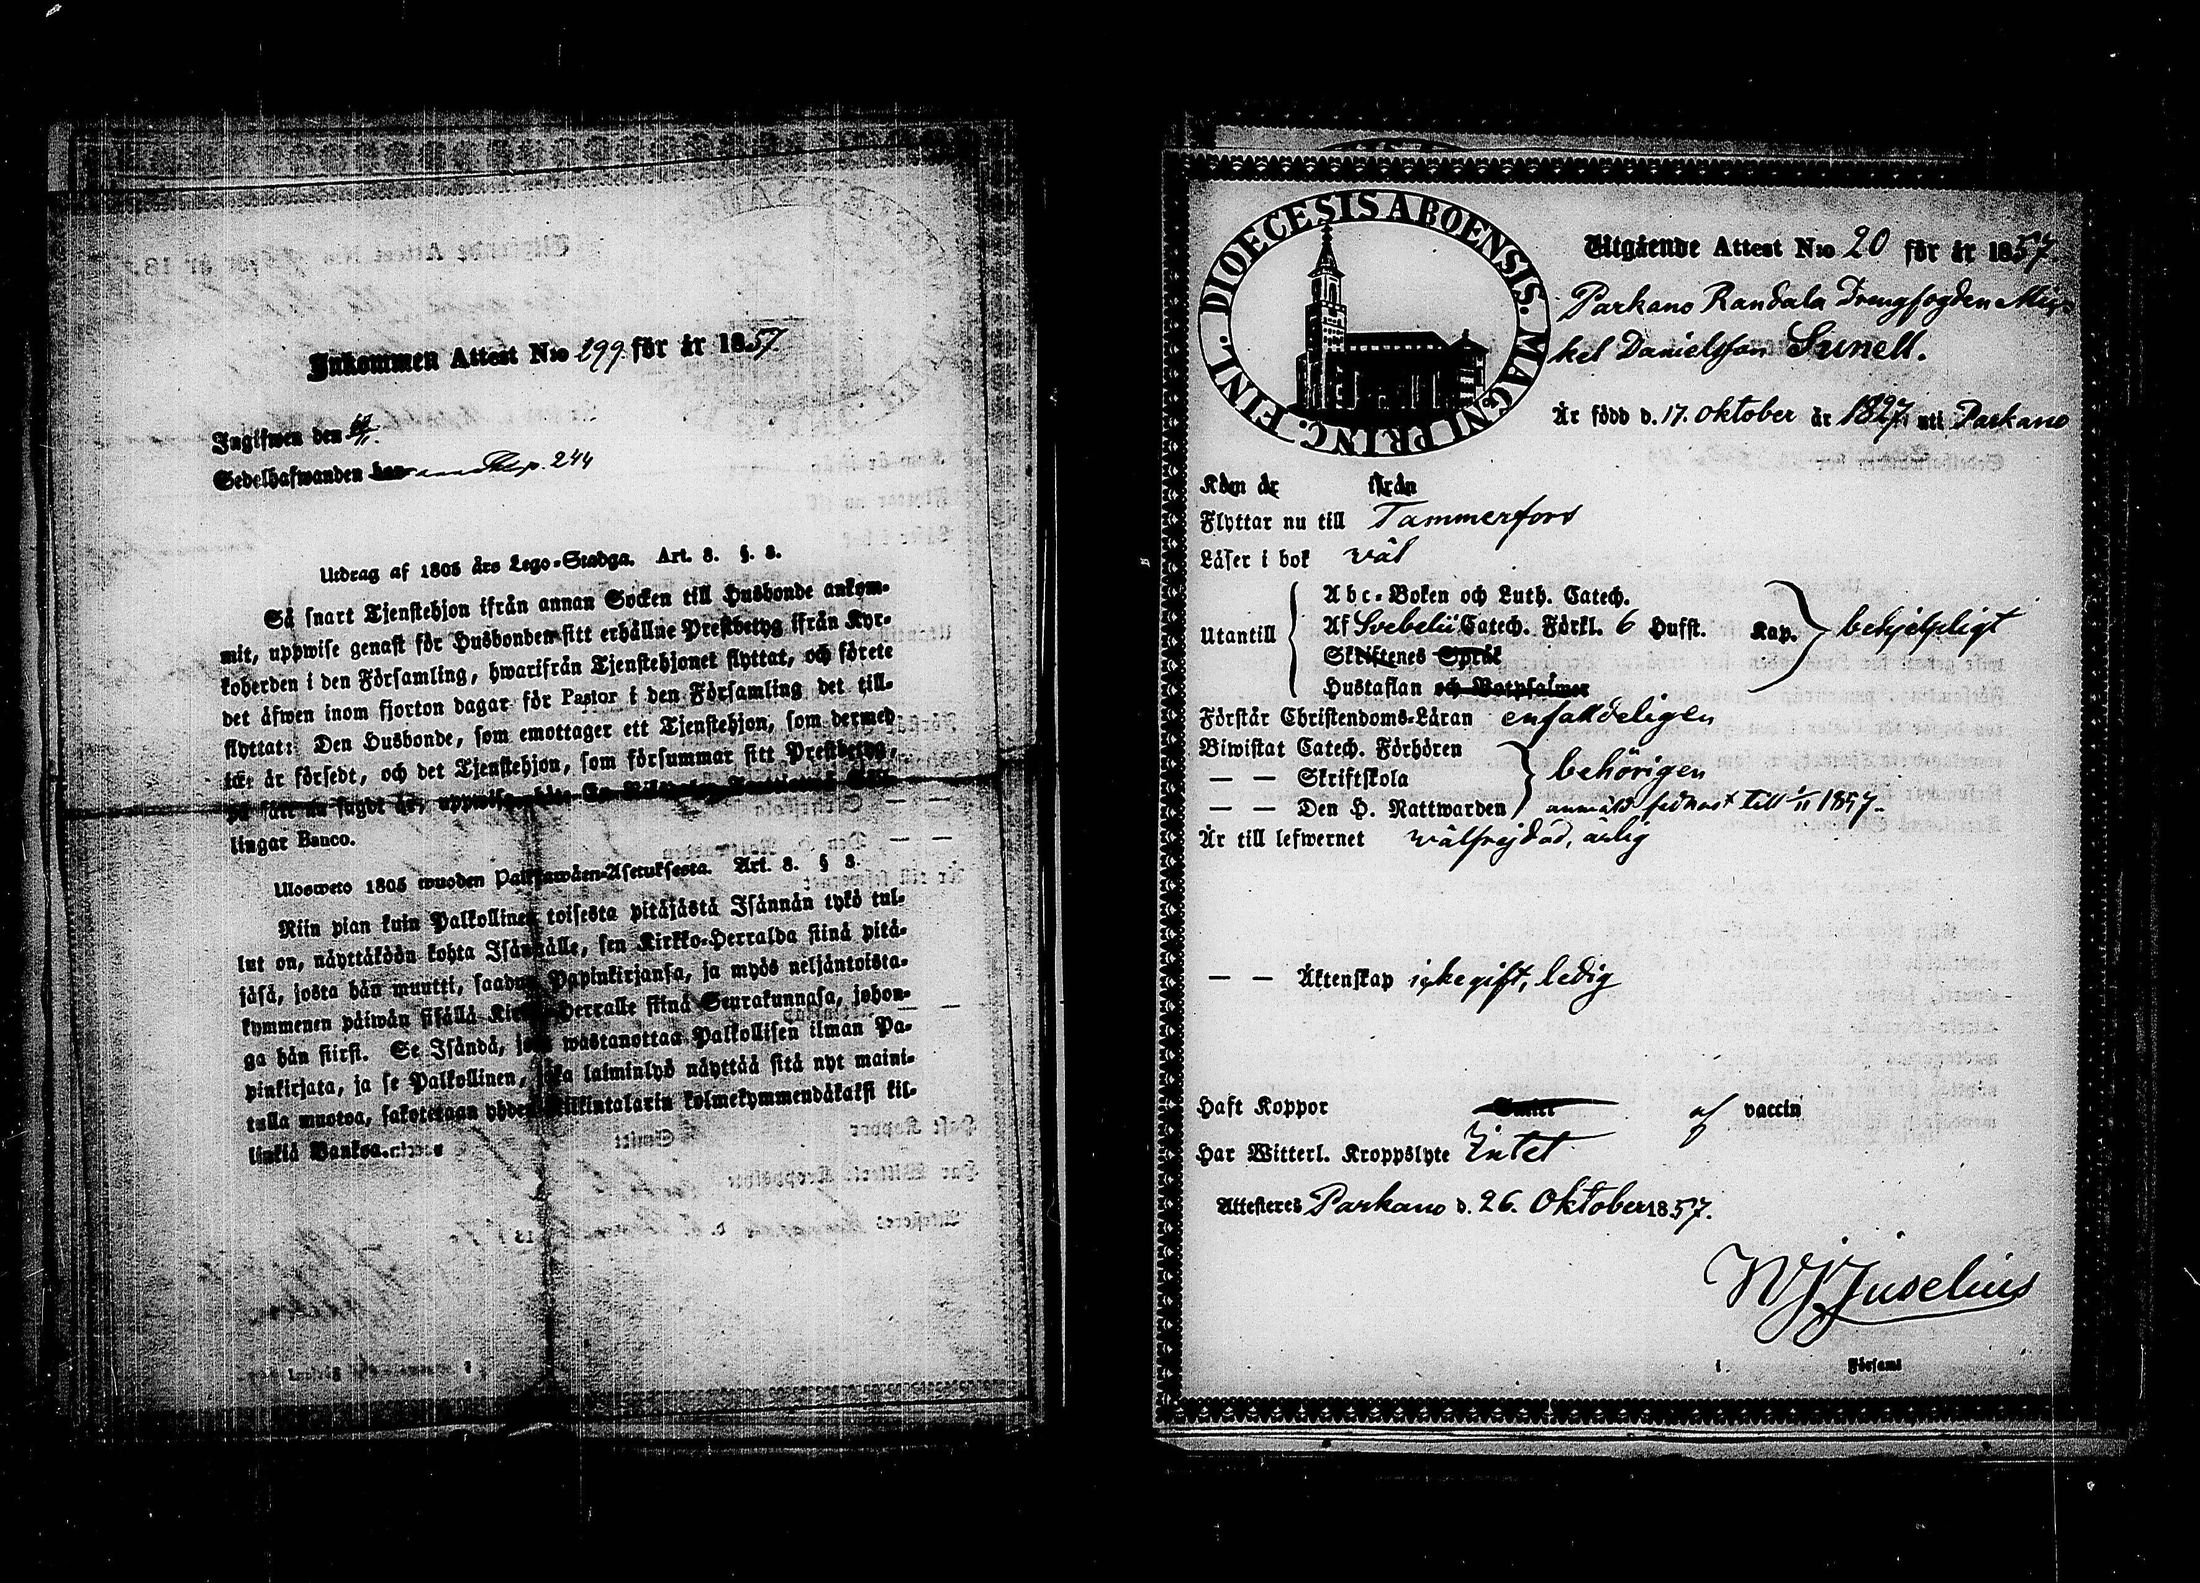 Inkommen Attest N:o 299 för år 1857
Ingifwen den
Sedelhafwanden har p. 244
Utdrag af 1805 års Lego-Stadga. Art. 8. §. 8.
Så snart Tjenstehjon ifrån annan Socken till Husbonde ankom-
mit, uppwise genast för Husbonden sitt erhållne Prestbetyg ifrån Kyr-
koherden i den Församling, hwarifrån Tjenstehjonet flyttat, och förete
det äfwen inom fjorton dagar för Pastor i den Församling det till-
flyttat: Den Husbonde, som emottager ett Tjenstehjon, som dermed
icke är försedt, och det Tjenstehjon, som försummar sitt Prestbetyg,
på sätt nu sagdt är, uppwisa,
lingar Banco.
Ulosweto 1805 wuoden Palkkawäen-Asetuksesta. Art. 8. § 8.
Niin pian kuin Palkollinen toisesta pitäjästä Isännän tykö tul-
lut on, näyttäköön kohta Isännälle, sen Kirkko-Herralda siinä pitä-
jäsä, josta hän muutti, saadun Papinkirjansa, ja myös neljäntoista-
kymmenen päiwän sisällä Kirkko-Herralle siinä Seurakunnasa, johon-
ga hän siirsi. Se Isändä, joka wastanottaa Palkollisen ilman Pa-
pinkirjata, ja se Palkollinen, joka laiminlyö näyttää sitä nyt maini-
tulla muotoa, sakotetaan yhden Riikintalarin kolmekymmendäkaksi kil-
linkiä Bankoa.
DIOECESIS ABOENSIS. MAGNI PRINC. FINL.
Utgående Attest N:o 20 för år 1857
Parkano Randala Drengfogden Mic-
kel Danielsson Sunell.
Är född d. 17. oktober år 1827 uti Parkano
Kom år ifrån
Flyttar nu till Tammerfors
Läser i bok wäl
Abc-Boken och Luth. Catech.
Utantill Af Svebelii Catech. Förkl. 6 Hufst. Kap. behjelpligt
Skriftenes Språk
Hustaflan och Botpsalmer
Förstår Christendoms-Läran enfaldeligen
Biwistat Catech. Förhören
— — Skriftskola behörigen
— — Den H. Nattwarden anmäld sednast till 1/11 1857.
Är till lefwernet wälfrejdad, ärlig
— — Äktenskap icke gift, ledig
Haft Koppor af vaccin
Har Witterl. Kroppslyte Intet
Attesteres Parkano d. 26. Oktober 1857.
WJJuselius
i Församl